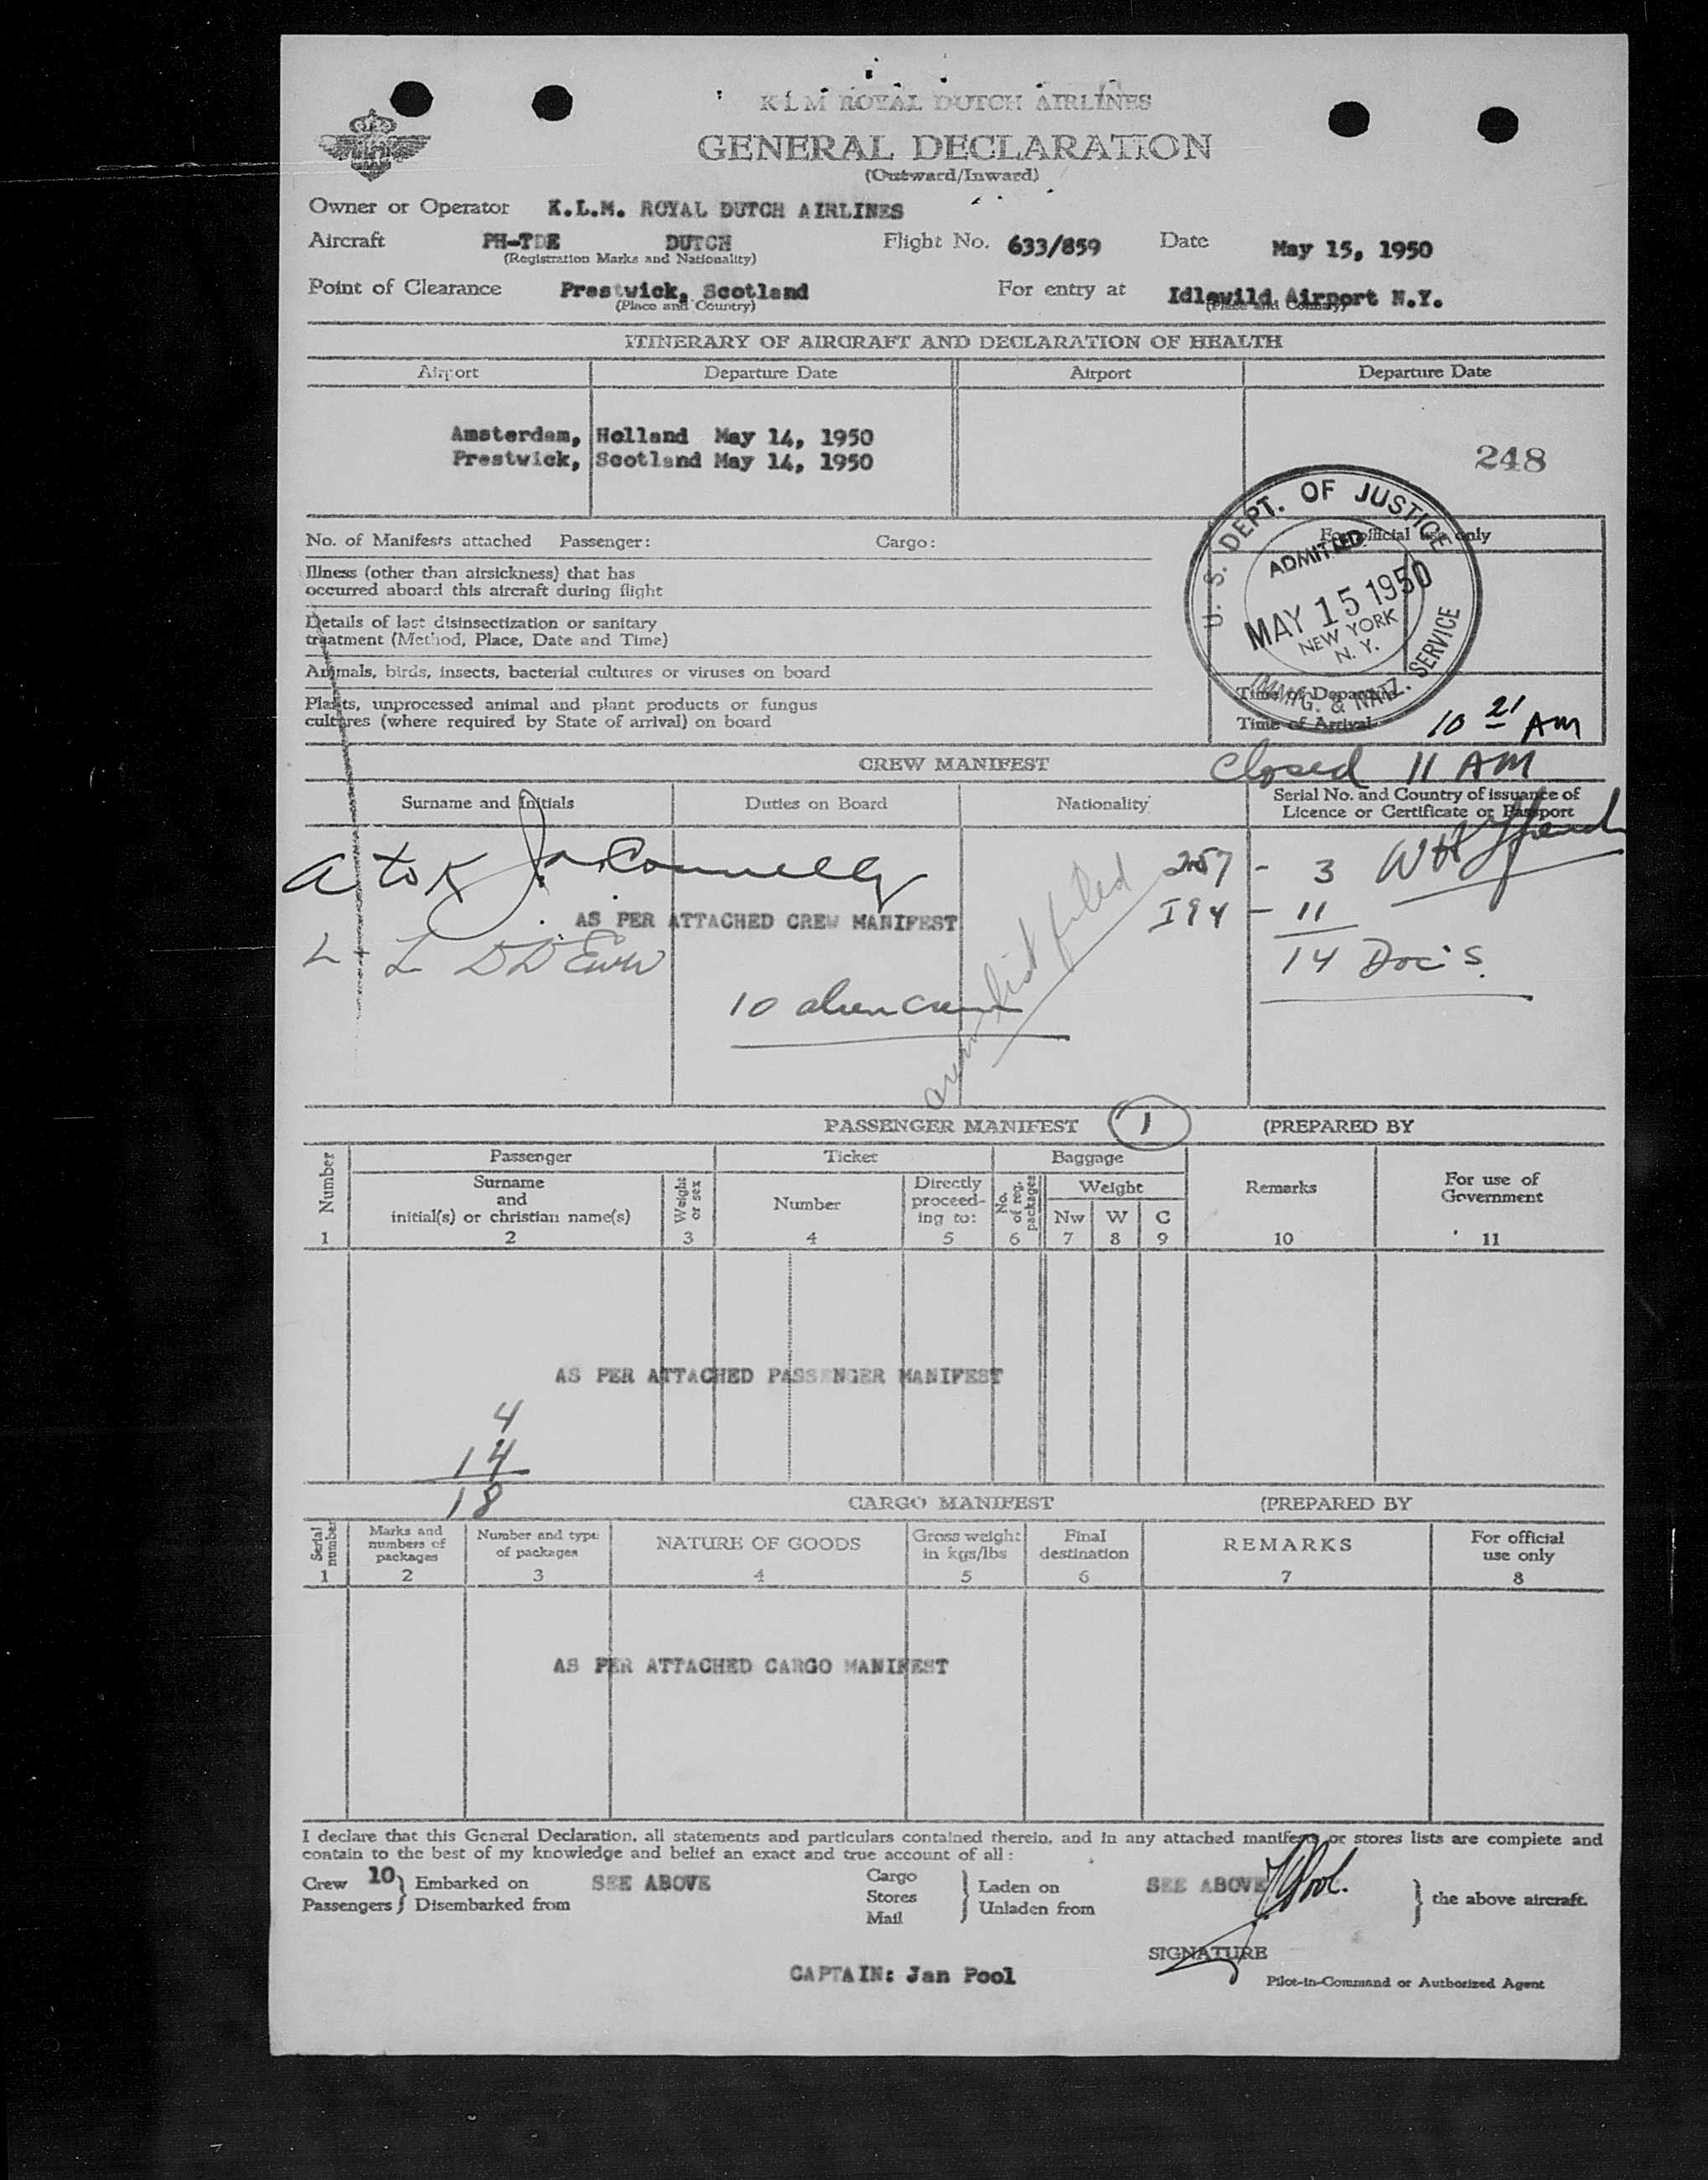 K L M ROYAL DUTCH AIRLINES
GENERAL DECLARATION
(Outward/Inward)
Owner or Operator K.L.M. ROYAL DUTCH AIRLINES
Aircraft PH-TDE DUTCH Flight No. 633/859 Date May 15, 1950
(Registration Marks and Nationality)
Point of Clearance Prestwick, Scotland For entry at Idlewild Airport N.Y.
(Place and Country) (Place and Country)
ITINERARY OF AIRCRAFT AND DECLARATION OF HEALTH
Airport Departure Date Airport Departure Date
Amsterdam, Holland May 14, 1950
Prestwick, Scotland May 14, 1950
248
No. of Manifests attached Passenger: Cargo:
For official use only
Illness (other than airsickness) that has
occurred aboard this aircraft during flight
Details of last disinsectization or sanitary
treatment (Method, Place, Date and Time)
Animals, birds, insects, bacterial cultures or viruses on board
Plants, unprocessed animal and plant products or fungus
cultures (where required by State of arrival) on board
U. S. DEPT. OF JUSTICE
ADMITTED
MAY 15 1950
NEW YORK
N. Y.
IMMIG. & NATZ. SERVICE
Time of Departure
Time of Arrival 10 21 AM
closed 11 AM
CREW MANIFEST
Surname and Initials Duties on Board Nationality Serial No. and Country of issuance of
Licence or Certificate or Passport
a to K
257 - 3
AS PER ATTACHED CREW MANIFEST
I94 - 11
14 Doc's.
10 alien crew
crew list filed
PASSENGER MANIFEST 1 (PREPARED BY
Number Passenger Ticket Baggage Remarks For use of
Government
Surname
and
initial(s) or christian name(s)
Weight
or sex
Number
Directly
proceed-
ing to:
No.
of reg.
packages
Weight
Nw W C
1 2 3 4 5 6 7 8 9 10 11
AS PER ATTACHED PASSENGER MANIFEST
4
14
18
CARGO MANIFEST (PREPARED BY
Serial
number
Marks and
numbers of
packages
Number and type
of packages
NATURE OF GOODS
Gross weight
in kgs/lbs
Final
destination
REMARKS
For official
use only
1 2 3 4 5 6 7 8
AS PER ATTACHED CARGO MANIFEST
I declare that this General Declaration, all statements and particulars contained therein, and in any attached manifests or stores lists are complete and
contain to the best of my knowledge and belief an exact and true account of all:
Crew 10 } Embarked on SEE ABOVE Cargo } Laden on SEE ABOVE } the above aircraft.
Passengers } Disembarked from Stores } Unladen from
Mail
JPool.
SIGNATURE
CAPTAIN: Jan Pool
Pilot-in-Command or Authorized Agent